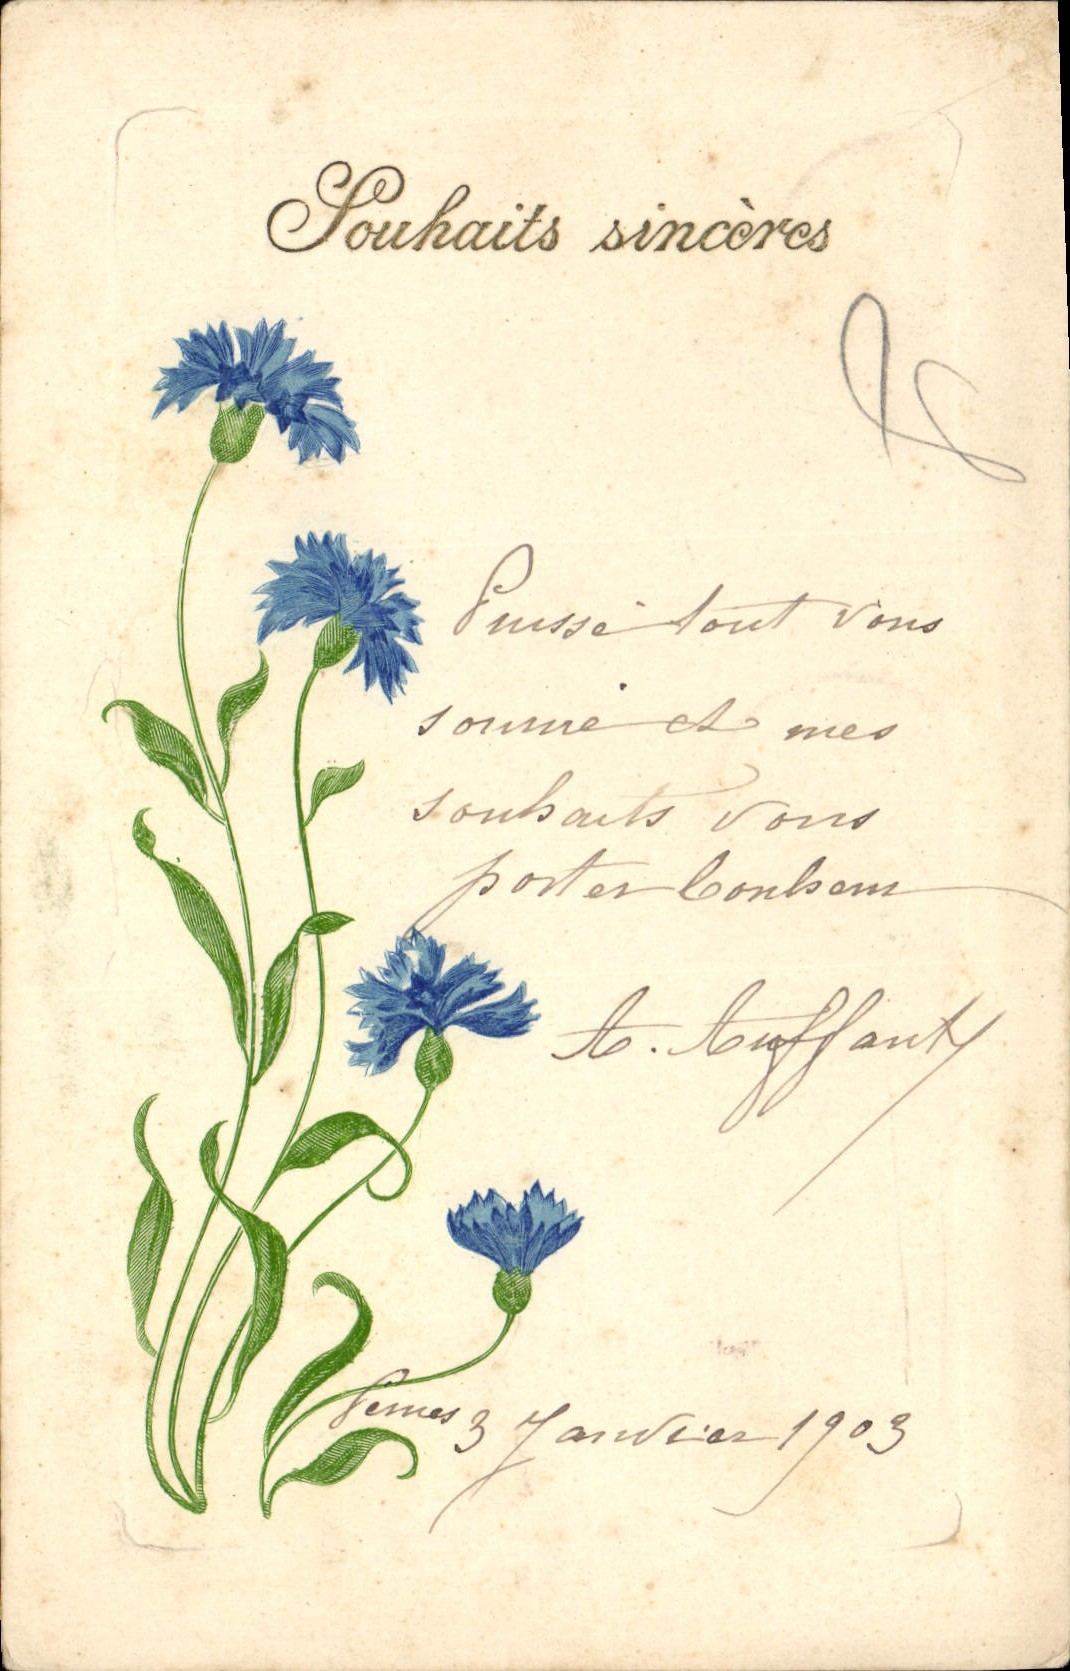 Souhaits sincères
Puisse tout vous
sourire et mes
souhaits vous
porter bonheur
A. Auffant
Pernes 3 Janvier 1903